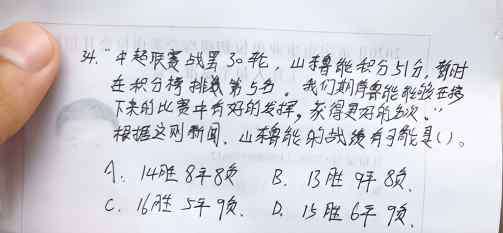 34. "中超联赛战罢30轮，山东鲁能积分51分，暂时
在积分榜排名第5名。我们期待鲁能能够在接
下来的比赛中有好的发挥，获得更好的名次。"
根据这则新闻，山东鲁能的战绩有可能是（）。
A. 14胜8平8负 B. 13胜9平8负.
C. 16胜5平9负. D. 15胜6平9负.